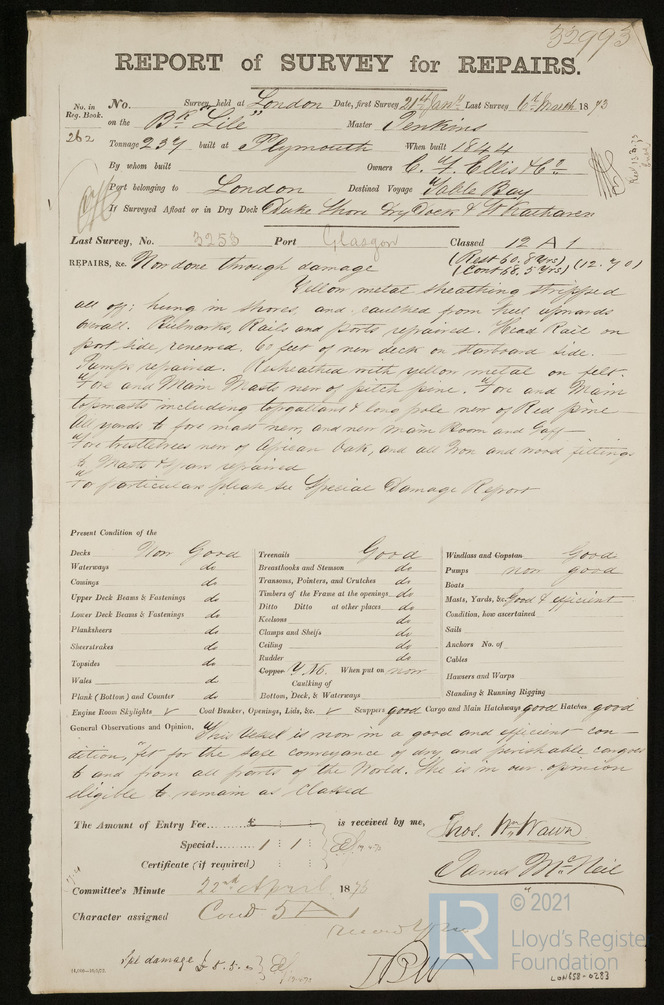 32993
REPORT of SURVEY for REPAIRS.
No. in Reg. Book. 262
No. Survey held at London Date, first Survey 21st Jany Last Survey 6th March 1873
on the Bk "Lile" Master Jenkins
Tonnage 237 built at Plymouth When built 1844
By whom built Owners C. F. Ellis & Co
Port belonging to London Destined Voyage Table Bay
If Surveyed Afloat or in Dry Dock Duke Shore Dry Dock & St Katharen
Last Survey, No. 3253 Port Glasgow Classed 12 A 1
(Rest 60. 8 yrs) (12. 70)
(Cont 68. 5 yrs)
REPAIRS, &c. Now done through damage
Yellow metal sheathing stripped
all off; hung in shores, and caulked from keel upwards
overall. Bulwarks, Rails and ports repaired. Head Rail on
port side, renewed. 60 feet of new deck on starboard side.
Pumps repaired. Resheathed with yellow metal on felt.
Fore and Main Masts new of pitch pine. Fore and Main
topmasts including topgallant & long pole new of Red pine
All yards to fore mast new, and new main Boom and Gaff
Fore trestletrees new of African Oak, and all Iron and wood fittings
to Masts & Spars repaired
For particulars please see Special Damage Report
Present Condition of the
Decks Now Good
Waterways do
Comings do
Upper Deck Beams & Fastenings do
Lower Deck Beams & Fastenings do
Planksheers do
Sheerstrakes do
Topsides do
Wales do
Plank (Bottom) and Counter do
Treenails Good
Breasthooks and Stemson do
Transoms, Pointers, and Crutches do
Timbers of the Frame at the openings do
Ditto Ditto at other places do
Keelsons do
Clamps and Shelfs do
Ceiling do
Rudder do
Copper Y.M. When put on now
Caulking of
Bottom, Deck, & Waterways
Windlass and Capstan Good
Pumps now good
Boats
Masts, Yards, &c. Good & efficient
Condition, how ascertained
Sails
Anchors No. of
Cables
Hawsers and Warps
Standing & Running Rigging
Engine Room Skylights v Coal Bunker, Openings, Lids, &c. v Scuppers good Cargo and Main Hatchways good Hatches good
General Observations and Opinion, This vessel is now in a good and efficient con-
dition, fit for the safe conveyance of dry and perishable cargoes
to and from all parts of the World. She is in our opinion
eligible to remain as Classed
The Amount of Entry Fee £ : : is received by me,
Special 1 : 1 :
Certificate (if required) : :
Thos. Wm. Wawn
James McNeil
Committee's Minute 22nd April 1873
Character assigned Cond 5 A 1
Spl damage £ 5. 5.
© 2021
LR
Lloyd's Register
Foundation
LON658-0283